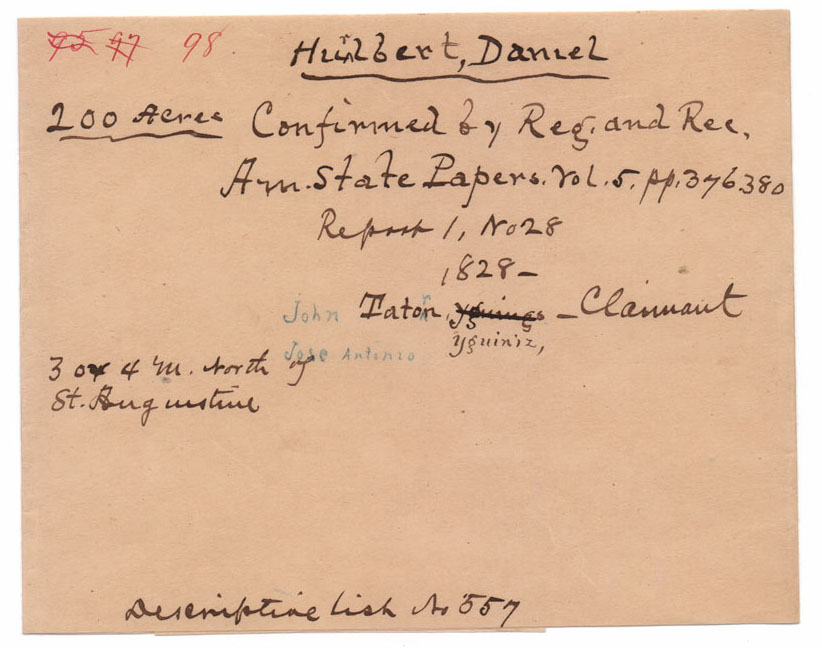 95 97 98
Hurlbert, Daniel
200 Acres Confirmed by Reg. and Rec.
Am. State Papers. Vol. 5. pp. 376.380
Report 1, No 28
1828 —
John Taton, — Claimant
Jose Antonio Yguiniz,
3 or 4 m. North of
St. Augustine
Descriptive list No 557